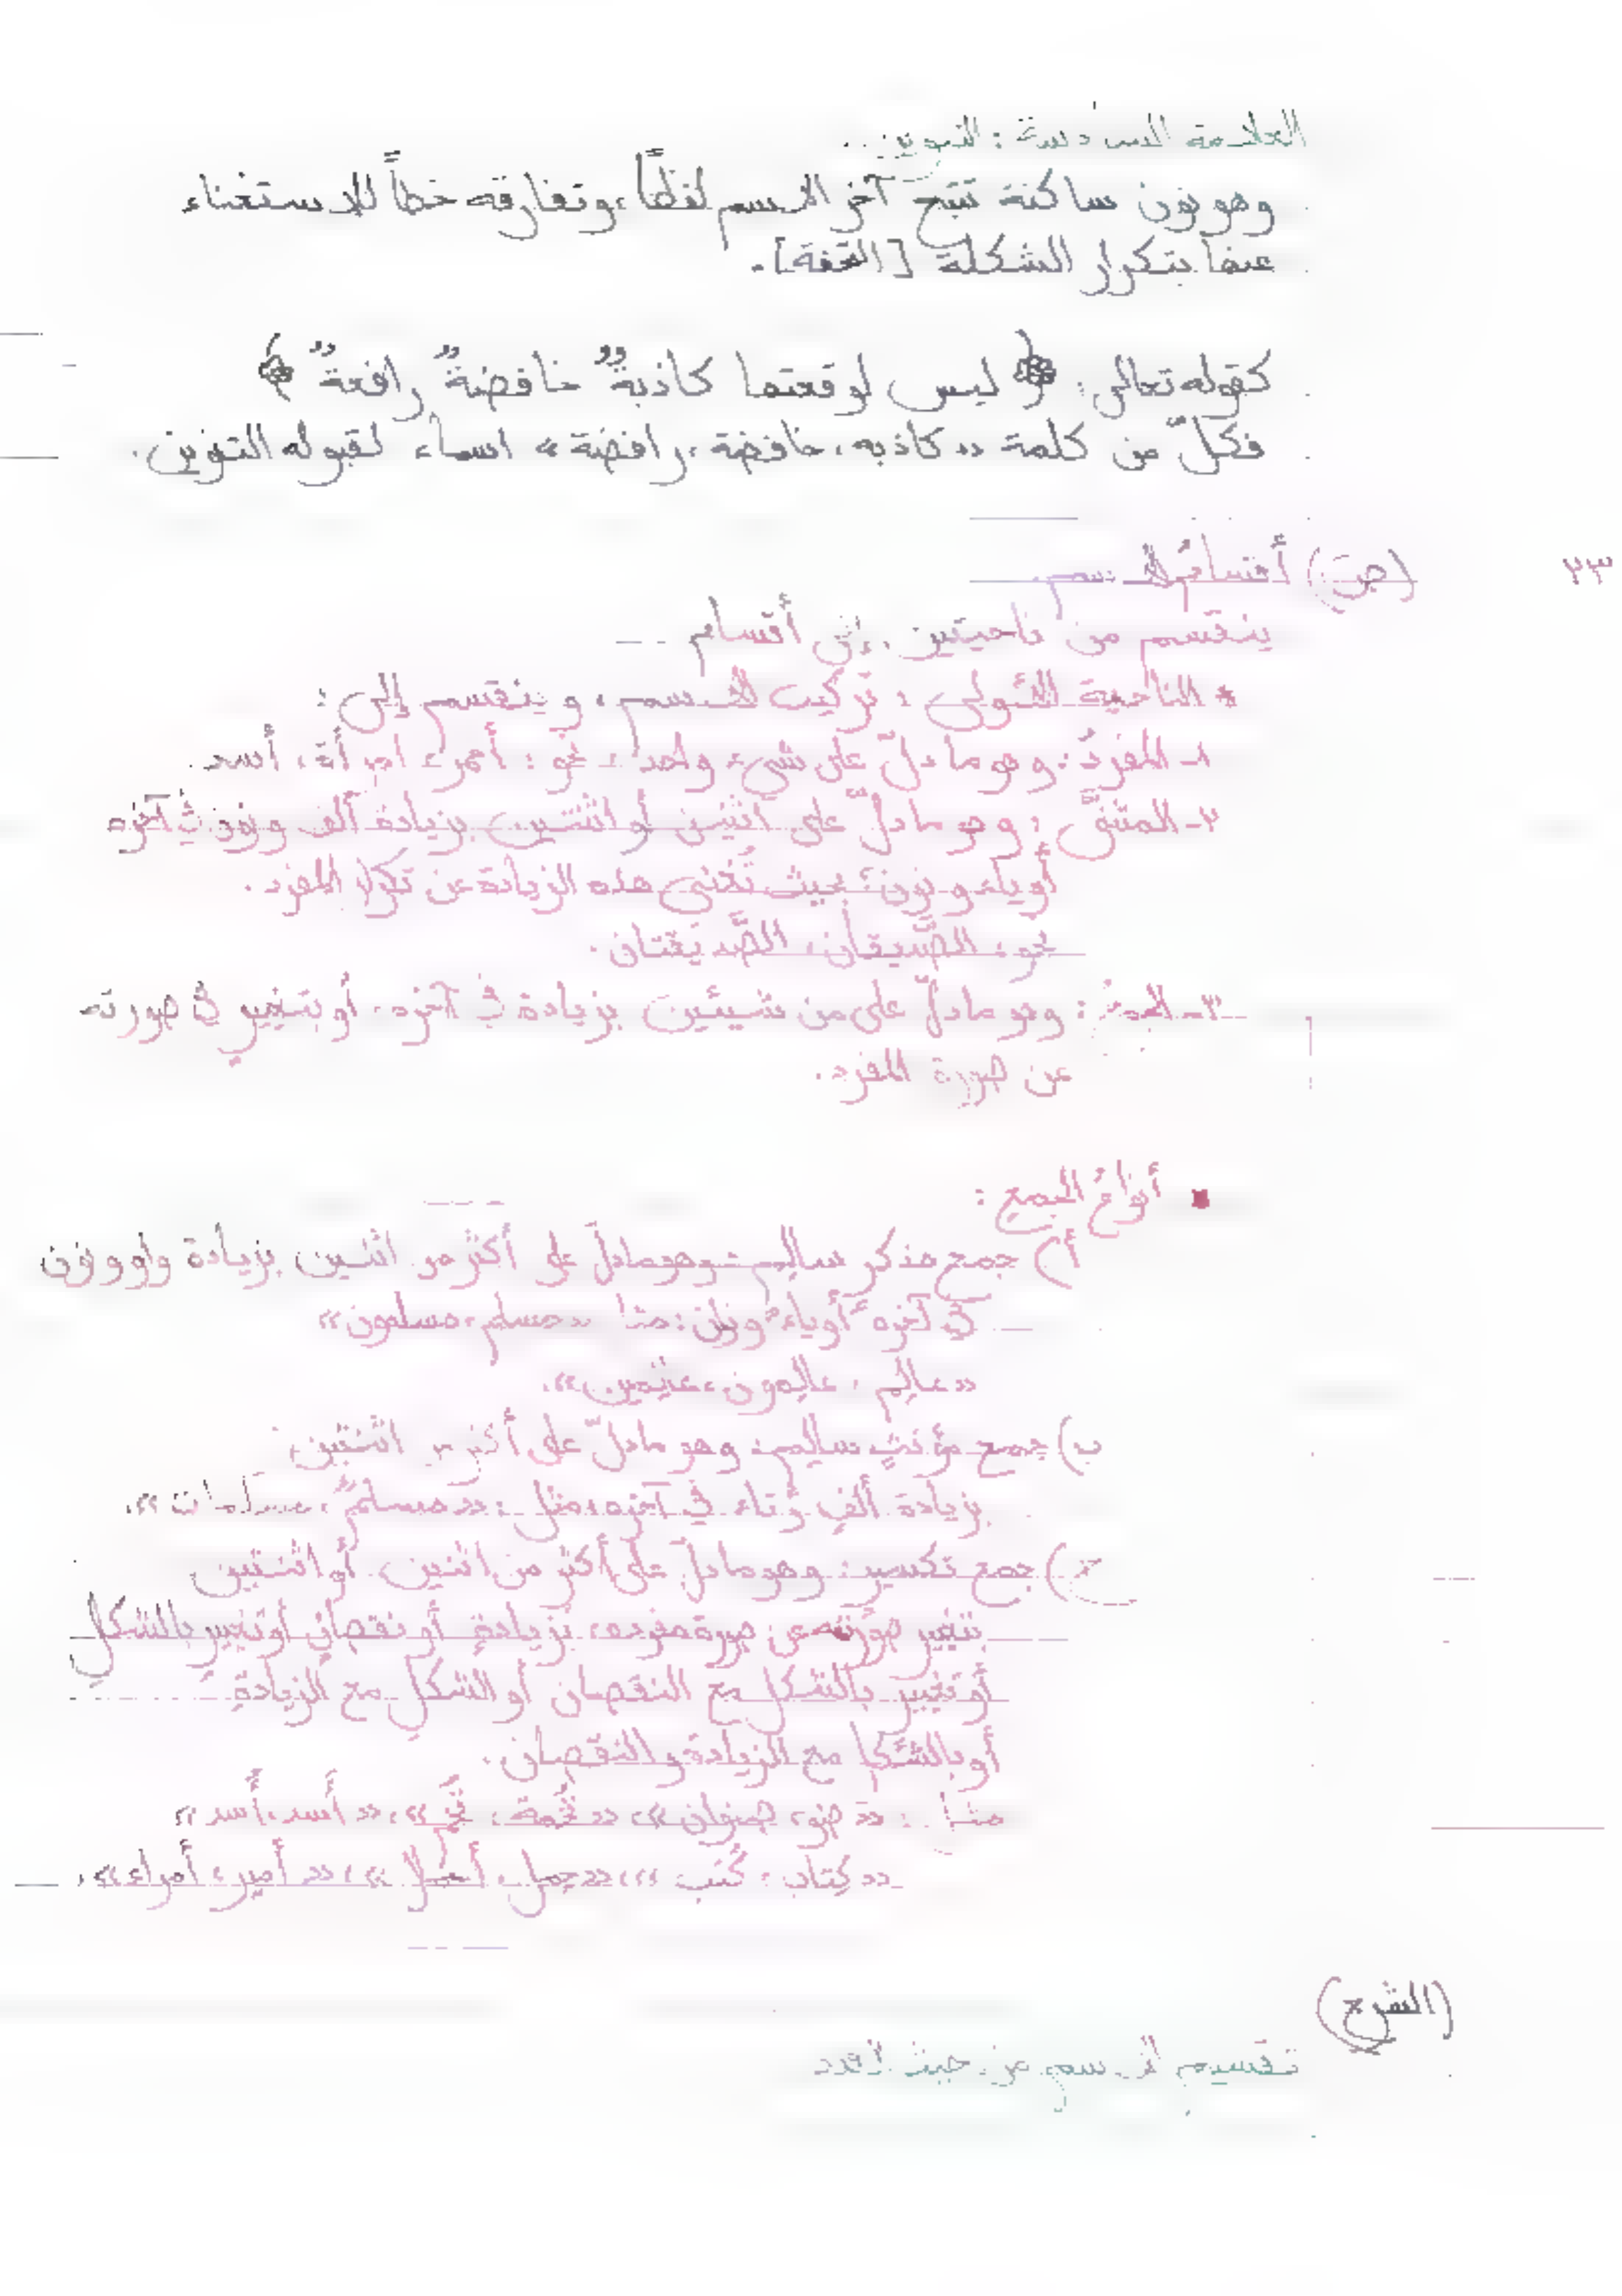 العلامة السادسة : التنوين .
وهو نون ساكنة تتبع آخر الاسم لفظاً، وتفارقه خطاً للاستغناء
عنها بتكرار الشكلة [التحفة].
كقوله تعالى: ﴿ ليس لوقعتها كاذبةٌ خافضةٌ رافعةٌ ﴾
فكلّ من كلمة « كاذبه، خافضة، رافضة » اسماء لقبوله التنوين.
٢٣ (ص) أقسامُ الاسم
ينقسم من ناحيتين، إلى أقسام
* الناحية الأولى : تركيب الاسم، وينقسم إلى :
١- المفردُ : وهو ما دلّ على شيء واحد، نحو : أحمر، امرأة، أسد.
٢- المثنّى : وهو ما دلّ على اثنين أو اثنتين بزيادة ألف ونون في آخره
أو ياء ونون؛ بحيث تُغني هذه الزيادة عن تكرار المفرد.
نحو : الصّديقان، الصّديقتان.
٣- الجمعُ : وهو ما دلّ على من شيئين بزيادة في آخره، أو بتغيير في صورته
عن صورة المفرد.
أنواعُ الجمعِ :
أ) جمع مذكر سالم : وهو ما دلّ على أكثر من اثنين بزيادة واو ونون
في آخره أو ياء ونون : مثل «مسلم، مسلمون»
«عالِم، عالِمون، عالِمين».
ب) جمع مؤنثٍ سالم : وهو ما دلّ على أكثر من اثنتين
بزيادة ألفٍ وتاء في آخره، مثل : «مسلمة، مسلمات».
ج) جمع تكسير : وهو ما دلّ على أكثر من اثنين أو اثنتين
بتغيير صورته عن صورة مفرده، بزيادةٍ أو نقصانٍ أو تغيير بالشكلِ
أو تغيير بالشكل مع النقصان أو الشكلِ مع الزيادةِ
أو بالشكل مع الزيادة والنقصان.
مثل : «صنو، صنوان»، «تُخمة، تُخَم»، «أَسد، أُسد»
«كِتاب، كُتب»، «جمل، أجمل»، «أمير، أمراء».
(الشرح)
تقسيم الاسم من حيث العدد